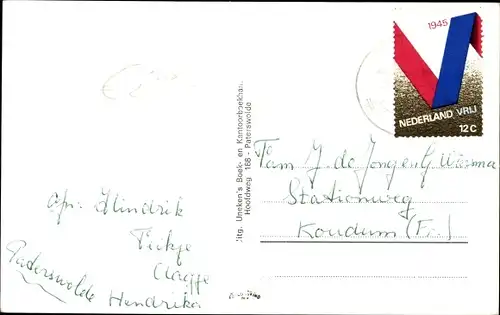 1945
NEDERLAND VRIJ
12 C
Uitg. Uneken's Boek- en Kantoorboekhan.
Hoofdweg 168 - Paterswolde
Fam J. de Jong-en G. Wiersma
Stationweg
Koudum (Fr.)
afz. Hindrik
Fokje
Paterswolde Hendrika